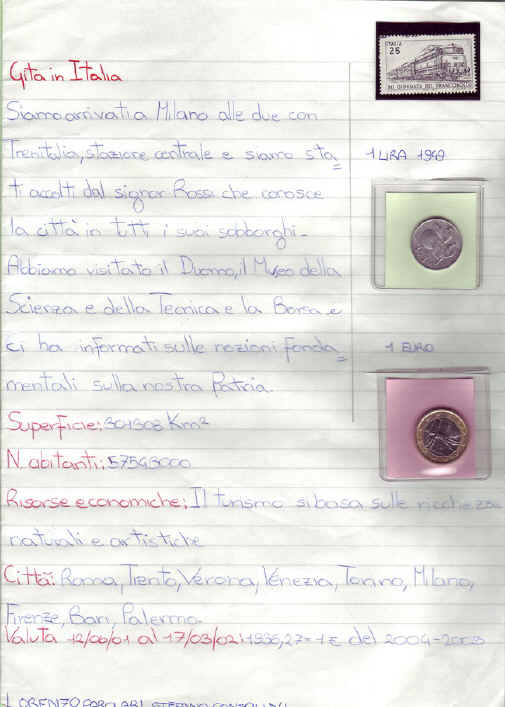 ITALIA
25
80 GIORNATA DEL FRANCOBOLLO
Gita in Italia
Siamo arrivati a Milano alle due con
Trenitalia, stazione centrale e siamo sta=
1 LIRA 1949
ti accolti dal signor Rossi che conosce
la città in tutti i suoi sobborghi.
Abbiamo visitato il Duomo, il Museo della
Scienza e della Tecnica e la Borsa e
ci ha informati sulle nozioni fonda=
1 EURO
mentali sulla nostra patria.
Superficie: 301303 Km²
N. abitanti: 57543000
Risorse economiche: Il turismo si basa sulle ricchezze
naturali e artistiche
Città: Roma, Trento, Verona, Venezia, Torino, Milano,
Firenze, Bari, Palermo.
Valuta 12/00/01 al 17/03/02: 1936,27= 1 € del 2004-2003
LORENZO